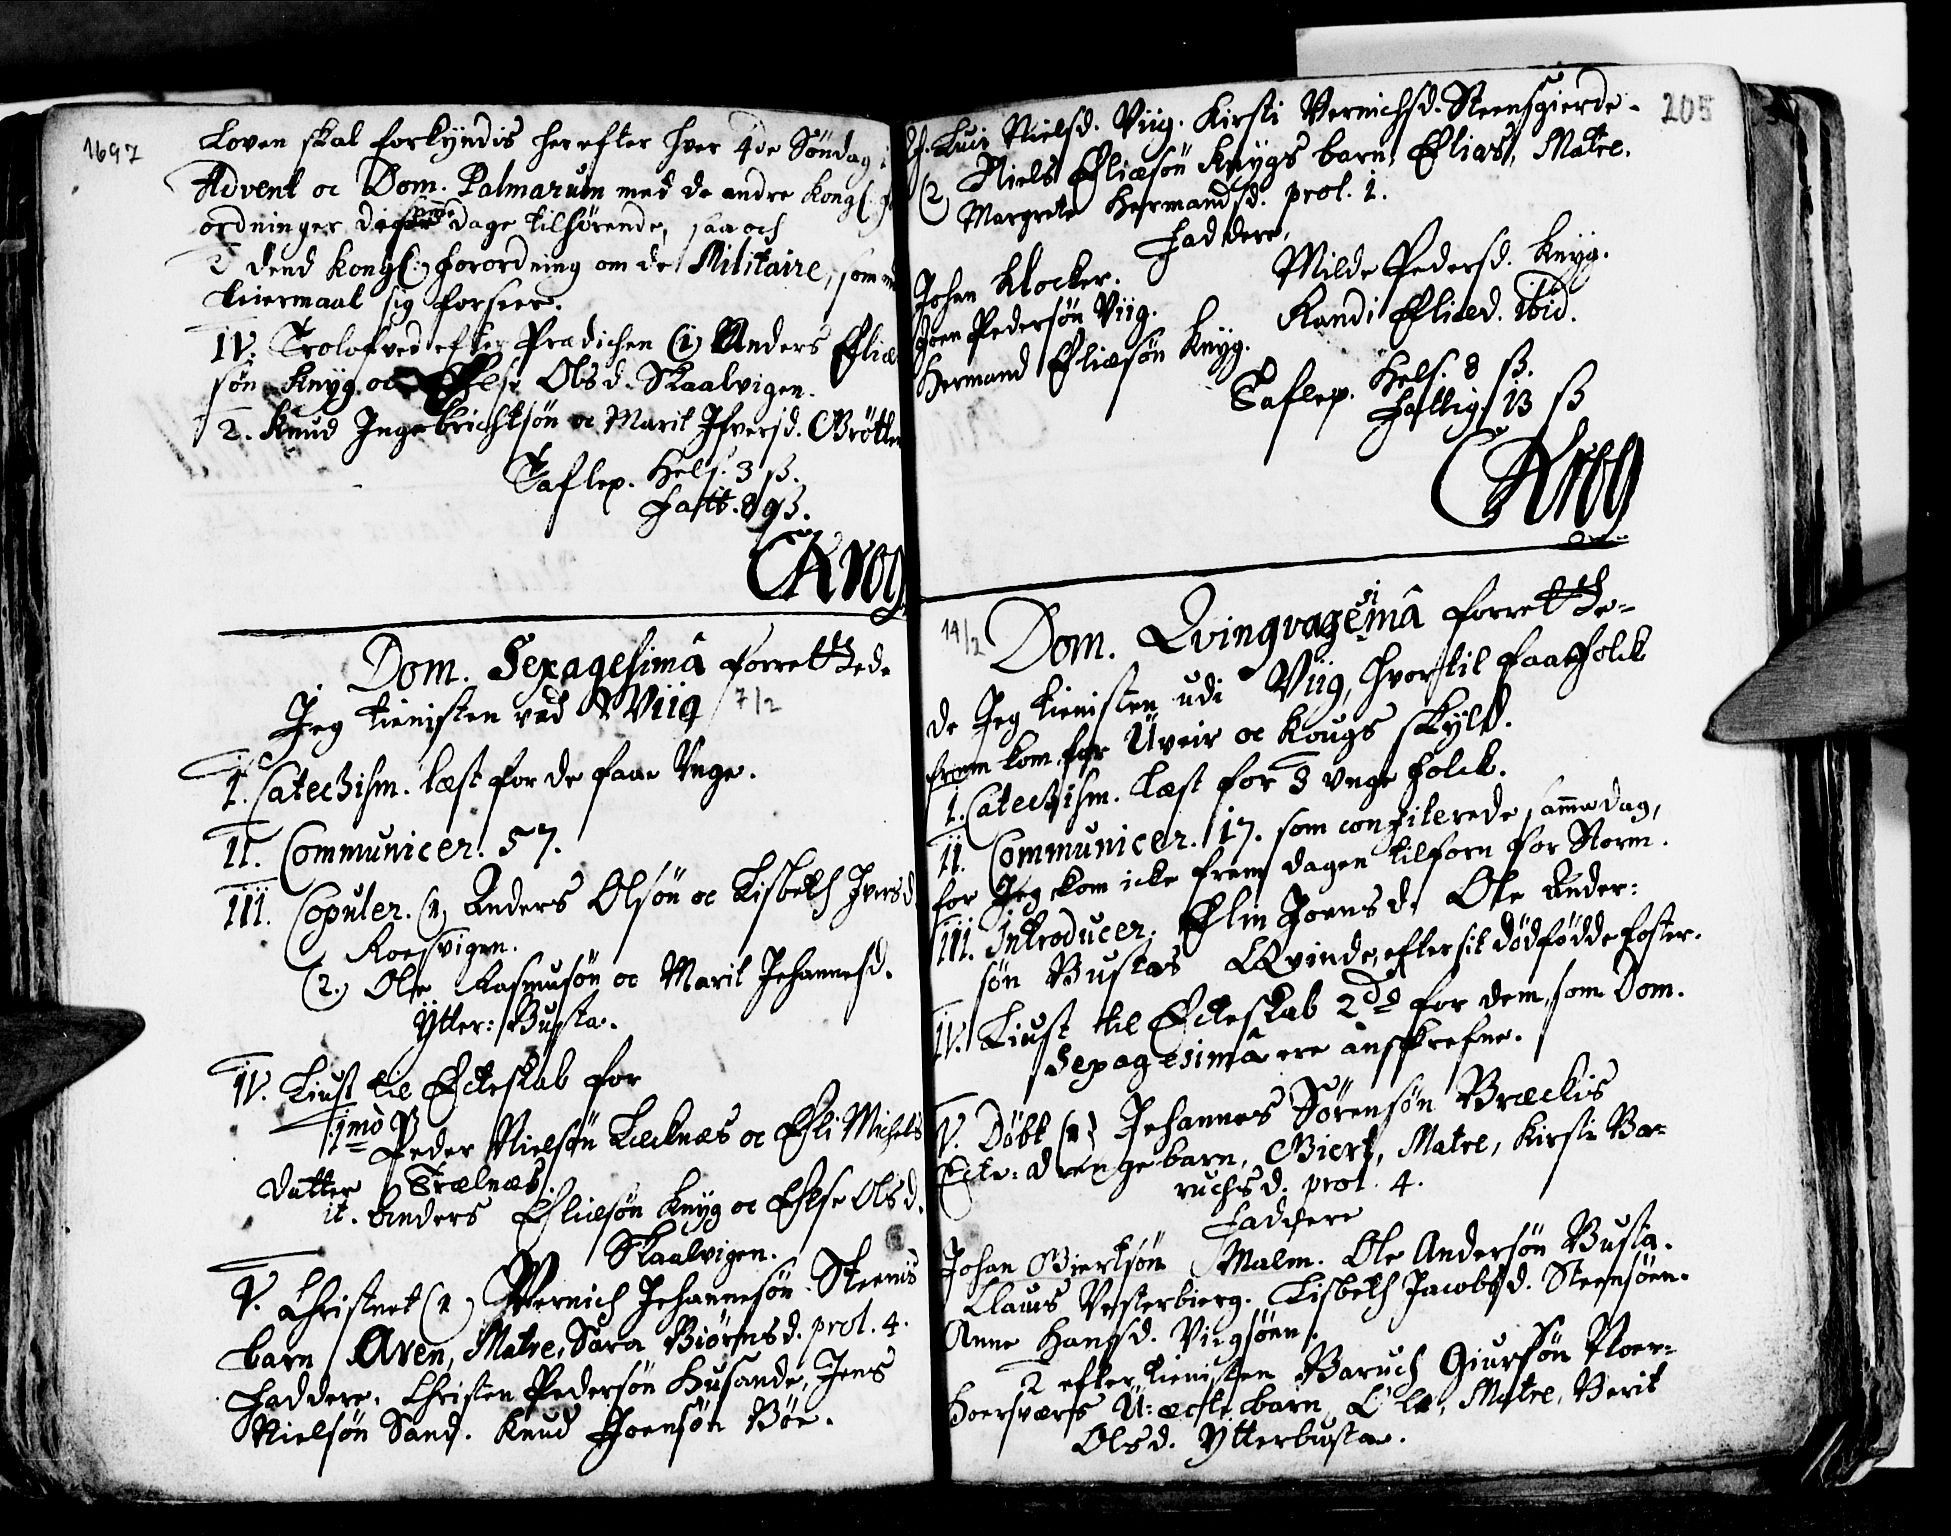 1697
Loven skal forkyndis her efter hver 4de Søndag i
Advent oc Dom. Palmarum med de andre Kongl: F
ordninger dage tilhørende, saa och
2 dend Kongl: forordning om de Militaire, som
Leiermaal sig forseer.
IV. Trolofved efter Prædichen (1) Anders Eliæ
søn Knyg. oc Else Olsd. Skaalvigen.
2. Knud Ingebrichtsøn oc Marit Ifversd. Grötte
Taflep. Hels. 3 ß.
Fatt. 8 ß.
CKrog
Dom. Sexagesimâ forrettede
Jeg tienisten ved Wiig 7/2
I. Catechism. læst for de faae Unge.
II. Communicer. 57.
III. Copuler. (1) Anders Olsøn oc Lisbeth Iversd
Roesvigen.
(2.) Ole Rasmusøn oc Marit Johannesd.
Ytter: Busta.
IV. Liust til Ecteskab for
1mo Peder Nielsøn Lecknæs oc Eli Michels
datter Trælnæs.
it. Anders Eliæsøn Knyg oc Else Olsd.
Skaalvigen.
V. Christnet (1) Wernich Johannesøn Steenis
barn Aven, Matre, Sara Biörnsd. prol. 4.
Faddere. Christen Pedersøn Husande, Jens
Nielsøn Sand. Knud Joensøn Böe.
205
Luci Nielsd. Viig. Kirsti Vernichsd. Steensgierde.
(2) Niels Eliæsøn Knygs barn, Elias, Matre.
Margrete Hermandsd. prol. 1.
Faddere,
Johan Klocker. Milde Pedersd. Knyg.
Joen Pedersøn Viig. Randi Eliæd. Ibid.
Hermand Eliæsøn Knyg.
Taflep. Hels. 8 ß.
Fattig. 13 ß
CKrog
14/2 Dom. Qvingvagesimâ forrette-
de Jeg tienisten udi Viig, hvortil faae Folck
frem kom for Üveir oc Kougs skyld.
I. Catechism. læst for 3 unge folck.
II. Communicer. 17. som confiterede samme dag,
for Jeg kom icke frem dagen tilforn for Storm.
III. Introducer. Elin Joensd. Ole Ander:
søn Bustas Qvinde, efter sit dødfödde foster.
IV. Liust til Ecteskab 2de for dem, som Dom.
Sexagesimâ ere anskrefne.
V. Döbt (1) Johannes Sörensøn Bræckis
Ecte: drenge barn, Giert, Matre, Kirsti Ba-
ruchsd. prol. 4.
Faddere
Johan Giertsøn Malm. Ole Andersøn Busta.
Claus Vesterbierg. Lisbeth Jacobsd. Steensöen.
Anne Hansd. Viigsöen.
2 efter tienisten Baruch Giursøn Noer-
Hoersværs Ü: æcte barn, Ole, Matre, Berit
Olsd. Ytterbusta.